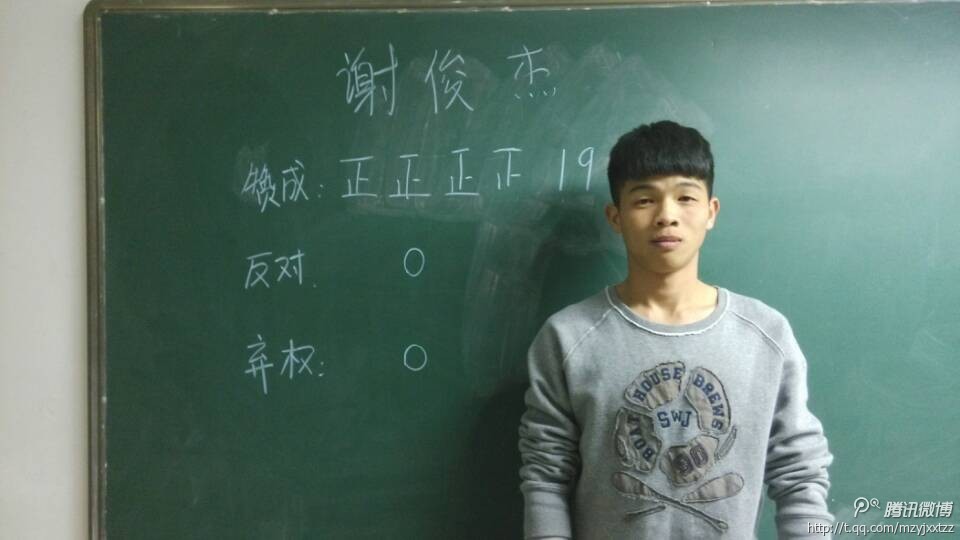 谢俊杰
赞成: 正 正 正 正 19
反对. 0
弃权: 0
BOAT HOUSE BREWS
SWJ
90
腾讯微博
http://t.qq.com/mzyjxxtzz